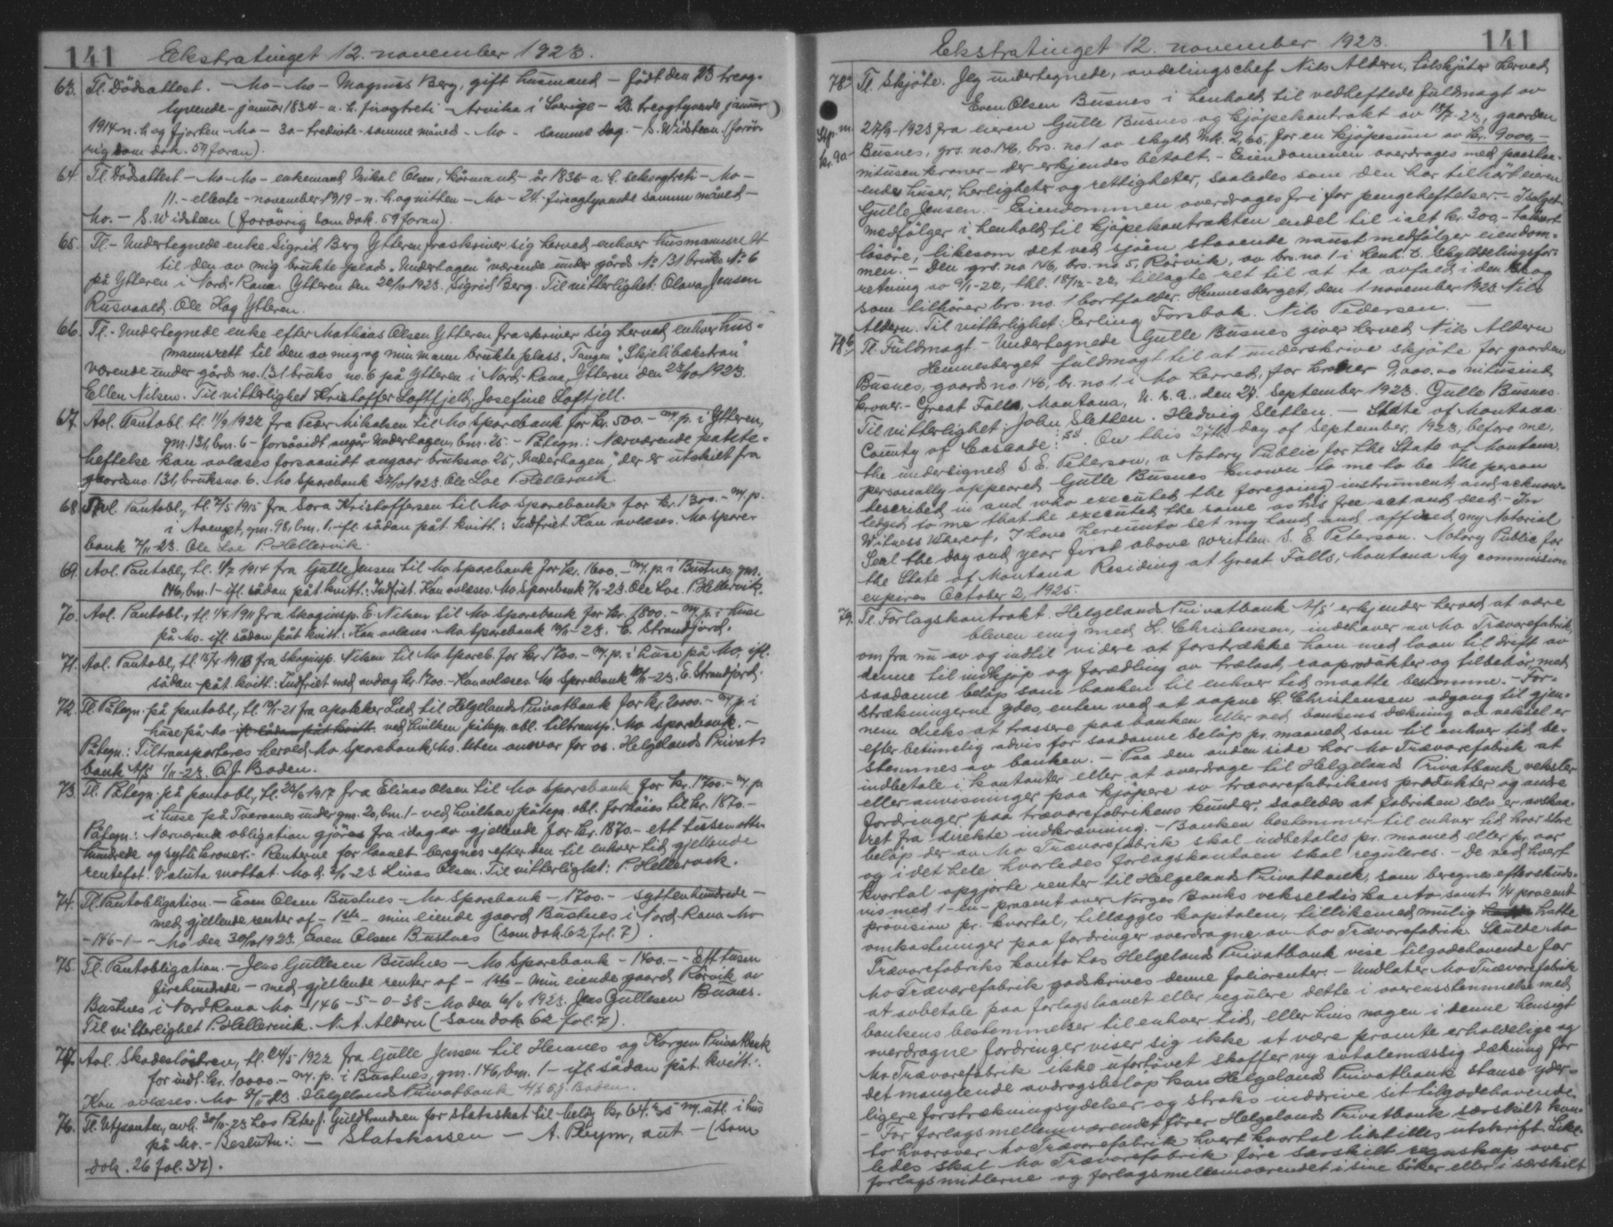 141 Ekstratinget 12. november 1923.
63. Tl. Dödsattest. - Mo - Mo - Magnus Berg, gift husmand - födt den 23 treog-
tyvende - januar 1834 - a. h. firogtreti - Arvika i Sverige - 23. treogtyvende januar
1914 - n. h. og fjorten - Mo - 30 - trediete - samme måned - Mo - samme dag. - S. Widsteen. (forøv-
rig som dok. 59 foran).
64. Tl. Dödsattest - Mo - Mo - enkemand Mikal Olsen, kårmand - år 1836 - a. h. seksogtreti - Mo -
11. - ellevte - november 1919 - n. h. og nitten - Mo - 24 - firogtyvende samme måned -
Mo. - S. Widsteen (forøvrig som dok. 59 foran).
65. Tl. - Undertegnede enke Sigrid Berg Ytteren fraskriver sig herved enhver husmannsrett
til den av mig brukte plads "Underhagen" værende under gårds No 131 bruks No 6
på Ytteren i Nord-Rana. Ytteren den 20/10 1923. Sigrid Berg. Til vitterlighet: Olava Jensen
Rusvaald. Ole Hag Ytteren.
66. Tl. - Undertegnede enke efter Mathias Olsen Ytteren fraskriver sig herved enhver hus-
mannsrett til den av mig og min mann brukte plass, Tangen "Skjelbækstran"
værende under gårds no. 131 bruks no. 6 på Ytteren i Nord-Rana. Ytteren den 23/10 1923.
Ellen Nilsen. Til vitterlighed Kristoffer Loftfjell, Josefine Loftfjell.
67. Avl. Pantobl. tl. 11/9 1922 fra Peder Mikalsen til Mo Sparebank for kr. 500. - m. p. i Ytteren,
gm. 131, bm. 6 - forsåvidt angår Underhagen, bm. 25 - Påtegn.: Nærværende pante-
heftelse kan avlæses forsaavidt angaar bruksno 25, "Underhagen", der er utskilt fra
gaardsno 131, bruksno 6. Mo Sparebank 27/10 1923. Ole Loe P. Hellervik
68. Avl. Pantobl., tl. 7/5 1915 fra Sora Kristoffersen til Mo Sparebank for kr. 1300. - m. p.
i gm. 98, bm. 1. ifl. sådan påt. kvitt.: Indfriet Kan avlæses. Mo Spare-
bank 7/11 23. Ole Loe P. Hellervik.
69. Avl. Pantobl., tl. 1/7 1914 fra Gulle Jensen til Mo Sparebank for kr. 1600. - m. p. i Bustnes, gm.
146, bm. 1 - ifl. sådan påt. kvitt.: Indfriet. Kan avlæses. Mo Sparebank 7/11 23. Ole Loe. P. Hellervik.
70. Avl. Pantobl., tl. 1/8 1911 fra skoginsp. E. Nilsen til Mo Sparebank for kr. 1800. - m. p. i huse
på Mo. ifl. sådan påt. kvitt.: Kan avlæses Mo Sparebank 10/11 23. E. Strandjord.
71. Avl. Pantobl., tl. 1918 fra Skoginsp. Nilsen til Mo Spareb. for kr. 1700. - m. p. i huse på Mo, ifl.
sådan påt. kvitt: Indfriet med avdrag kr. 1700. - Kan avlæses Mo Sparebank 10/11 23. E. Strandjord.
72. Tl. Påtegn. på pantobl., tl. 21 fra apoteker Lied, til Helgelands Privatbank for kr. 2000. - m. p. i
huse på Mo ifl. sådan påt. kvitt. ved hvilken påtegn. obl. tiltransp. Mo Sparebank. -
Påtegn.: Tiltransporteres herved Mo Sparebank, Mo. Uten ansvar for os. Helgelands Privat-
bank A/S 1/11-23. O. J. Boden.
73. Tl. Påtegn. på pantobl., tl. 24/6 1917 fra Elinas Olsen til Mo Sparebank for kr. 1700. - m. p.
i huse på Tveraanes under gm. 20, bm. 1 - ved hvilken påtegn. obl. forhöies til kr. 1870. -
Påtegn.: Nærværende obligation gjöres fra idag av gjellende for kr. 1870. - ett tusen otte-
hundrede og sytti kroner. - Renterne for laanet beregnes efter den til enhver tid gjellende
rentefot. Valuta mottat. Mo d. 2/11-23 Linas Olsen. Til vitterlighet: P. Hellervik.
74. Tl. Pantobligation. - Even Olsen Bustnes - Mo Sparebank - 1700. - syttenhundrede -
med gjellende renter af - 1ste - min eiende gaard Bustnes i Nord Rana Mo
- 146 - 1 - - Mo den 30/10 1923. Even Olsen Bustnes (som dok. 62 fol. 7).
75. Tl. Pantobligation. - Jens Gullesen Bustnes - Mo Sparebank - 1400. - - Ett tusen
firehundrede - med gjellende renter af - 1ste - min eiende gaard Rørvik av
Bustnes i Nord Rana Mo - 146 - 5 - 0 - 38 - Mo den 6/11 1923. Jens Gullesen Busnes.
Til vitterlighet P. Hellervik. N. A. Aldern (som dok. 62 fol. 7).
Avl. Skadeslösbrev, tl. 24/5 1922 fra Gulle Jensen til Hemnes og Korgen Privatbank
for indt. kr. 10000. - m. p. i Bustnes, gm. 146, bm. 1 - ifl. sådan påt. kvitt.:
Kan avlæses. Mo 7/11-23. Helgelands Privatbank A/S O. J. Boden.
76. Tl. Utpantn., avh. 30/10-23 hos Peter J. Guldbrandsen for statsskat til beløp kr. 64.35 m. utl. i hus
på Mo. - Beslutn.: - Statskassen - A. Pleym, aut - (som
dok. 26 fol. 37).
Ekstratinget 12. november 1923. 141
78a Tl. Skjøte. Jeg undertegnede, avdelingschef Nils Aldern, tilskjøter herved
Even Olsen Busnes i henhold til vedheftede fuldmagt av
27/9-1923 fra eieren Gulle Busnes og kjøpekontrakt av 18/7-23, gaarden
Stp. m. Busnes, grs. no. 146, brs. no. 1 av skyld Mrk. 2,60, for en kjøpesum av kr. 9000,-
kr. 90 nitusen kroner - der erkjendes betalt. - Eiendommen overdrages med paastaa-
ende huser, herligheter og rettigheter, saaledes som den har tilhørt eieren
Gulle Jensen. - Eiendommen overdrages fri for pengeheftelser. - I salget
medfølger i henhold til kjøpekontrakten endel til ialt kr. 200,- taksert
løsøre, likesom det ved sjøen staaende naust medfølger eiendom-
men. - Den grs. no 146, brs. no 5, Rørvik, av brs. no 1 i henh. t. Skylddelingsfor-
retning av 9/11-22, thl. 18/12-22, tillagte ret til at ta avfald i den skog
som tilhører brs. no. 1 bortfalder. Hemnesberget, den 1 november 1923 Nils
Aldern. Til vitterlighet: Erling Forsbak. Nils Pedersen.
78b Tl. Fuldmagt. - Undertegnede Gulle Busnes giver herved Nils Aldern
Hemnesberget fuldmagt til at underskrive skjøte for gaarden
Busnes, gaards no. 146, br. no 1 i Mo herred, for kroner 9000.00 nitusind
kroner. - Great Falls, Montana, U. S. A., den 27. September 1923. Gulle Busnes.
Til vitterlighet: John Sletten. Hedvig Sletten. - State of Montana
County of Cascade: ss. On this 27th day of September, 1923, before me,
the undersigned S. E. Peterson, a Notary Public for the State of Montana,
personally appeared Gulle Busnes known to me to be the person
described in and who executed the foregoing instrument and acknow-
ledged to me that he executed the same as his free act and deed. - In
Witness Whereof, I have hereunto set my hand and affixed my Notorial
Seal the day and year first above written. S. E. Peterson. Notary Public for
the State of Montana Residing at Great Falls, Montana My commission
expires October 2, 1925.
79. Tl. Forlagskontrakt. Helgelands Privatbank A/S erkjender herved at være
bleven enig med L. Christensen, indehaver av Mo Trævarefabrik,
om fra nu av og indtil videre at forstrække ham med laan til drift av
denne til indkjøp og forædling av trælast, raaprodukter og tilbehør, med
saadanne beløp som banken til enhver tid maatte bestemme. - For-
strækningerne ydes, enten ved at aapne L. Christensen adgang til gjen-
nem cheks at trassere paa banken eller ved bankens dækning av veksler
efter betimelig advis for saadanne beløp pr. maaned som til enhver tid be-
stemmes av banken. - Paa den anden side har Mo Trævarefabrik at
indbetale i kontanter eller at overdrage til Helgelands Privatbank veksler
eller anvisninger paa kjøpere av trævarefabrikens produkter og andre
fordringer paa trævarefabrikens kunder, saaledes at fabriken selv er avskaa-
ret fra direkte indkrævning. - Banken bestemmer til enhver tid hvor stort
beløp der av Mo Trævarefabrik skal indbetales pr. maaned eller pr. aar
og i det hele hvorledes forlagskontoen skal reguleres. - De ved hvert
kvartal opgjorte renter til Helgelands Privatbank, som beregnes efterskuds-
vis med 1 - en - procent over Norges Banks vekseldiskonto samt 1/4 procent
provision pr. kvartal, tillægges kapitalen, tillikemed mulig hatte
omkostninger paa fordringer overdragne av Mo Trævarefabrik. Skulde Mo
Trævarefabriks konto hos Helgelands Privatbank vise tilgodehavende for
Mo Trævarefabrik godskrives denne foliorenter. - Undlater Mo Trævarefabrik
at avbetale paa forlagslaanet eller regulere dette i overensstemmelse med
bankens bestemmelser til enhver tid, eller hvis nogen i denne hensigt
overdragne fordringer viser sig ikke at være promte erholdelige og
Mo Trævarefabrik ikke ufortøvet skaffer ny avtalemæssig dækning for
det manglende avdragsbeløp kan Helgelands Privatbank stanse yder-
ligere forstrækningsydelser og straks inddrive sit tilgodehavende.
- For forlagsmellemværendet fører Helgelands Privatbank særskilt kon-
to hvorover Mo Trævarefabrik hvert kvartal tilstilles utskrift. Like-
ledes skal Mo Trævarefabrik føre særskilt regnskap over
forlagsmidlerne og forlagsmellemværendet i sine bøker eller i særskilt